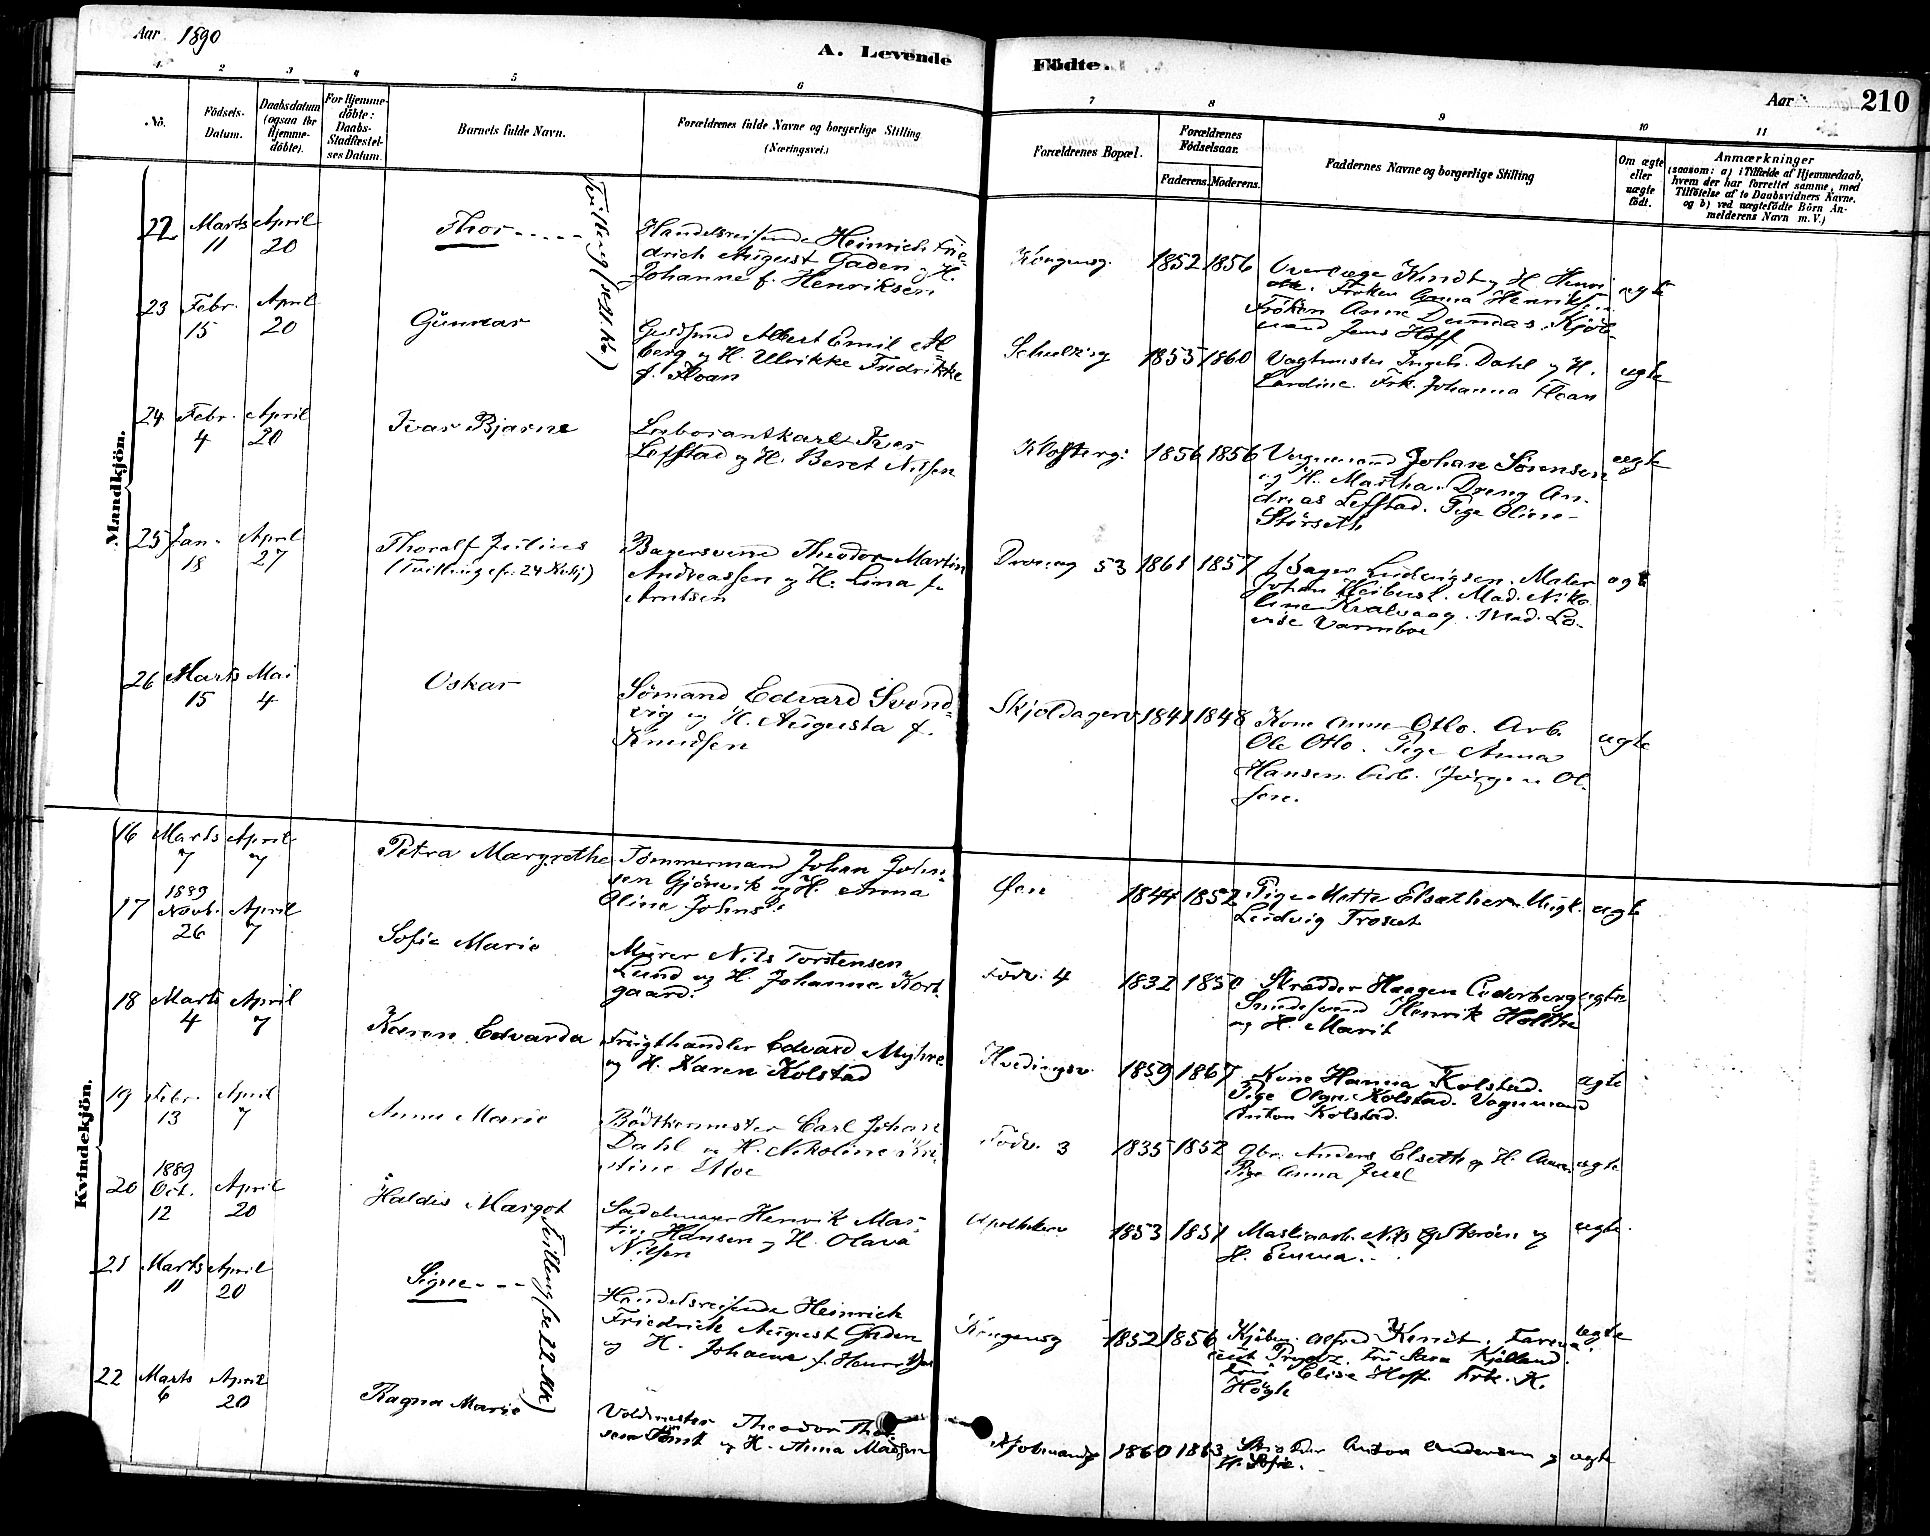 Aar 1890
A. Levende Födte.
Aar 210
1 2 3 4 5 6 7 8 9 10 11
No.
Födsels-Datum.
Daabsdatum (ogsaa for Hjemme-döbte).
For Hjemme-döbte: Daabs-Stadfæstel-ses Datum.
Barnets fulde Navn.
Forældrenes fulde Navne og borgerlige Stilling
(Næringsvei.)
Forældrenes Bopæl.
Forældrenes Födselsaar.
Faderens. Moderens.
Faddernes Navne og borgerlige Stilling
Om ægte eller uægte födt.
Anmærkninger
(saasom: a) i Tilfælde af Hjemmedaab,
hvem der har forrettet samme, med
Tilföielse af to Daabsvidners Navne.
og b) ved uægtefödte Börn An-
melderens Navn m. V.)
Mandkjön.
22 Marts 11 April 20 Thor
Tvilling (se 21 Kv)
Handelsreisende Heinrich Frie-
drich August Gaden og H.
Johanne f. Henriksen
Kongensg. 1852 1856
Overlæge Kindt og H. Henri
Frøken Anna Henriks
Frøken Anne Dundas. Kjøb-
mand Jens Hoff
ægte
23 Febr. 15 April 20 Gunnar
Albert Emil
berg og H. Ulrikke Fredrikke
f. Floan
1855 1860
Vagtmester Ingebr. Dahl og H.
Lardine. Frk. Johanna Floan
ægte
24 Febr. 4 April 20 Ivar Bjarne
Laborantkarl Iver
Lefstad og H. Beret Nilsen
Klosterg: 1856 1856
Vognmand Johan Sørensen
og H. Martha. Dreng An-
dreas Lefstad. Pige Oline
Størseth
ægte
25 Jan. 18 April 27 Thoralf Julius
(Tvilling efr. 24 Kvkj)
Bagersvend Theodor Martin
Andreassen og H. Lina f.
Arntsen
Dronng 53 1861 1857
Bager Ludvigsen. Maler
Johan Heibust. Mad. Niko-
line Kvalvaag. Mad. Lo-
vise Varmboe
ægte
26 Marts 15 Mai 4 Oskar
Sømand Edvard Svend-
vig og H. Augusta f.
Knudsen
Skjoldagerv. 1841 1848
Kone Anne Otlo. Arb.
Ole Otlo. Pige Anna
Hansen. Arb. Jørgen Ol-
sen.
ægte
Kvindekjön.
16 Marts 7 April 7 Petra Margrethe
Tømmermand Johan John-
sen Gjønvik og H. Anna
Oline Johns
Øen 1844 1852
Pige Mette Elsæther. Ungk.
Ludvig Troset
ægte
17 1889 Novb. 26 April 7 Sofie Marie
Murer Nils Torstensen
Lund og H. Johanna Kort-
gaard.
Fodv. 4 1832 1850
Skrædder Haagen Cederberg
Henrik Holthe
og H. Marit
ægte
18 Marts 4 April 7 Karen Edvarda
Frugthandler Edvard Myhre
og H. Karen Kolstad
Hvedingsv. 1859 1867
Kone Hanna Kolstad.
Pige Olga Kolstad. Vognmand
Anton Kolstad.
ægte
19 Febr. 13 April 7 Anna Marie
Bødtkermester Carl Johan
Dahl og H. Nikoline Kri-
stine Moe
Fodv. 3 1835 1852
Gbr. Anders Elseth og H. Anne
Pige Anna Juul
ægte
20 1889 Oct. 12 April 20 Haldis Margot
Sadelmager Henrik Mar-
tin Hansen og H. Olava
Nilsen
Apotheker 1853 1851
Maskinarb. Nils Skrøen og
H. Emma.
ægte
21 Marts 11 April 20 Signe
Tvilling (se 22 Mk)
Handelsreisende Heinrich
Friedrich August Gaden
og H. Johanne f. Henriksen
Kongensg 1852 1856
Kjøbm. Alfred Kindt.
Prydz. Fru Sara Kjelland.
Fru Elise Hoff. Frk. K.
Høgh
ægte
22 Marts 6 April 20 Ragna Marie
Voldmester Theodor
og H. Anna Madsen
Kjøbmandsg 1860 1863
Anton Andersen og
H. Sofie.
ægte